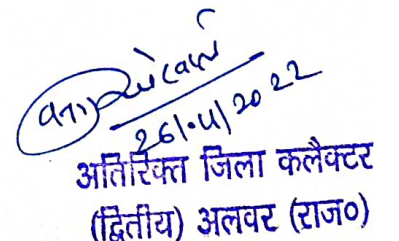 26/4/2022
अतिरिक्त जिला कलैक्टर
(द्वितीय) अलवर (राज०)